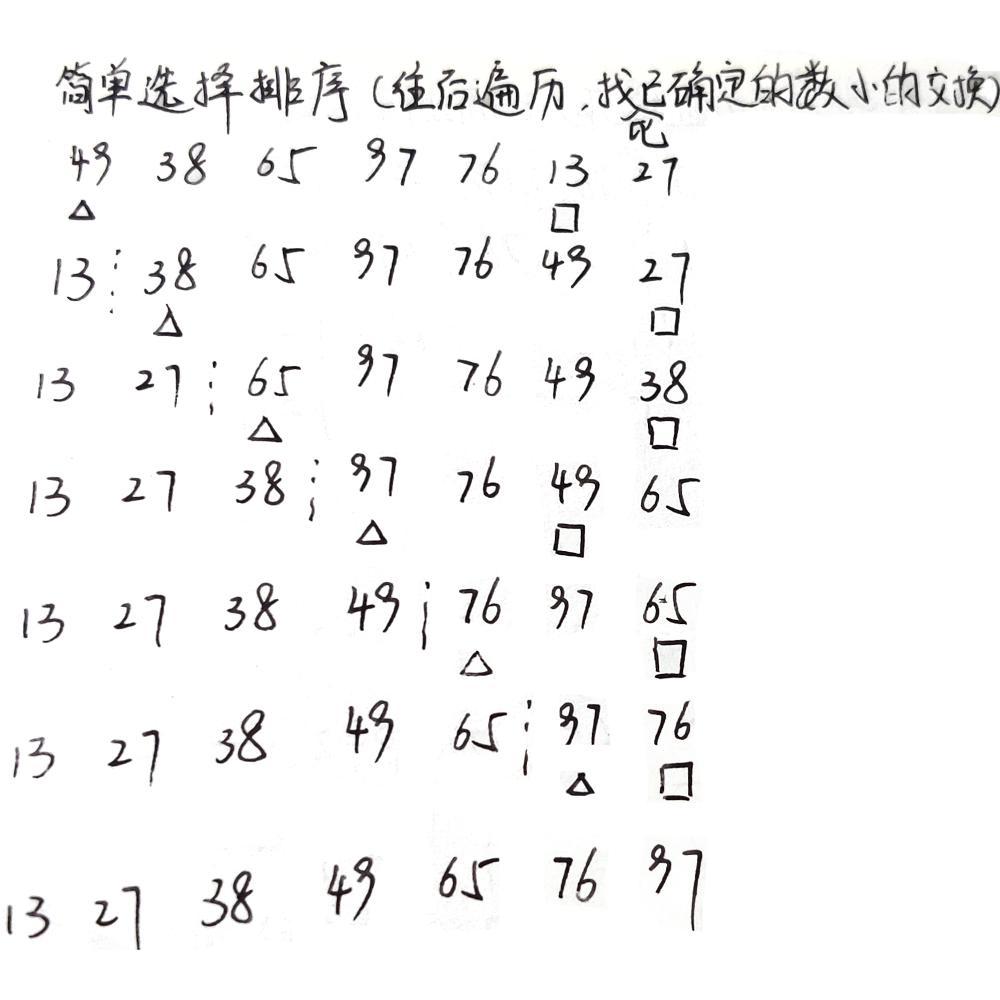 简单选择排序(往后遍历,找比已确定的数小的交换)
49 38 65 97 76 13 27
13 38 65 97 76 49 27
13 27 65 97 76 49 38
13 27 38 97 76 49 65
13 27 38 49 76 97 65
13 27 38 49 65 97 76
13 27 38 49 65 76 97